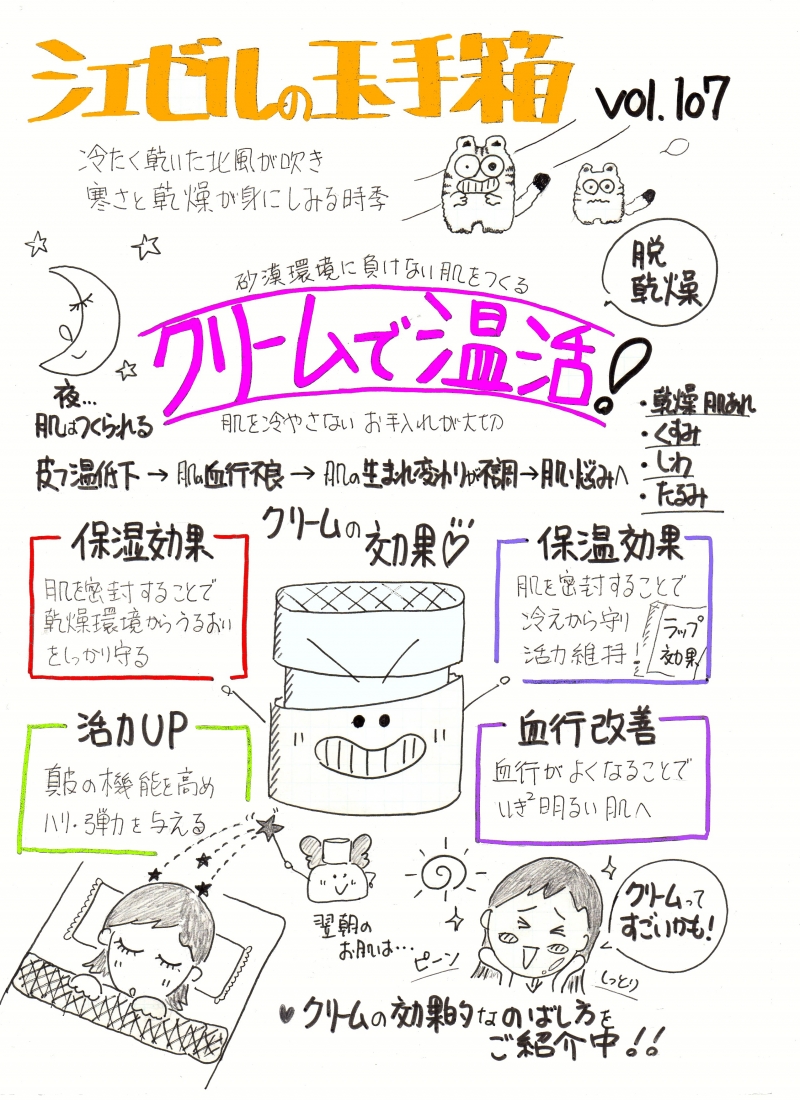 シエゼルの玉手箱 vol.107
冷たく乾いた北風が吹き
寒さと乾燥が身にしみる時季
脱
乾燥
砂漠環境に負けない肌をつくる
クリームで温活!
肌を冷やさない お手入れが大切
夜…
肌はつくられる
皮フ温低下→肌の血行不良→肌の生まれ変わりが不調→肌悩みへ
・乾燥 肌あれ
・くすみ
・しわ
・たるみ
クリームの効果♡
保湿効果
肌を密封することで
乾燥環境からうるおい
をしっかり守る
保温効果
肌を密封することで
冷えから守り
活力維持!
ラップ
効果
活力UP
真皮の機能を高め
ハリ・弾力を与える
血行改善
血行がよくなることで
いき²明るい肌へ
翌朝の
お肌は…
ピーン
しっとり
クリームって
すごいかも!
♥クリームの効果的なのばし方を
ご紹介中!!